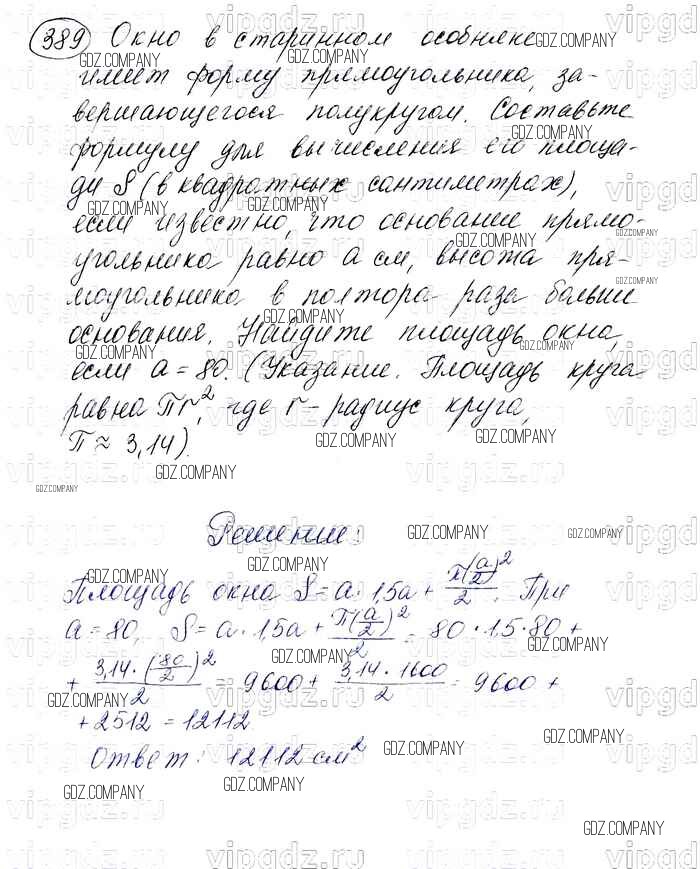 389 Окно в старинном особняке
имеет форму прямоугольника, за-
вершающегося полукругом. Составьте
формулу для вычисления его площа-
ди S (в квадратных сантиметрах),
если известно, что основание прямо-
угольника равно a см, высота пря-
моугольника в полтора раза больше
основания. Найдите площадь окна,
если a = 80. (Указание. Площадь круга
равна πr², где r – радиус круга,
π ≈ 3,14).
Решение:
Площадь окна S = a · 1,5a + π(a/2)²/2. При
a = 80, S = a · 1,5a + π(a/2)²/2 = 80 · 1,5 · 80 +
+ 3,14 · (80/2)²/2 = 9600 + 3,14 · 1600/2 = 9600 +
+ 2512 = 12112
Ответ: 12112 см²
GDZ.COMPANY
vipgdz.ru